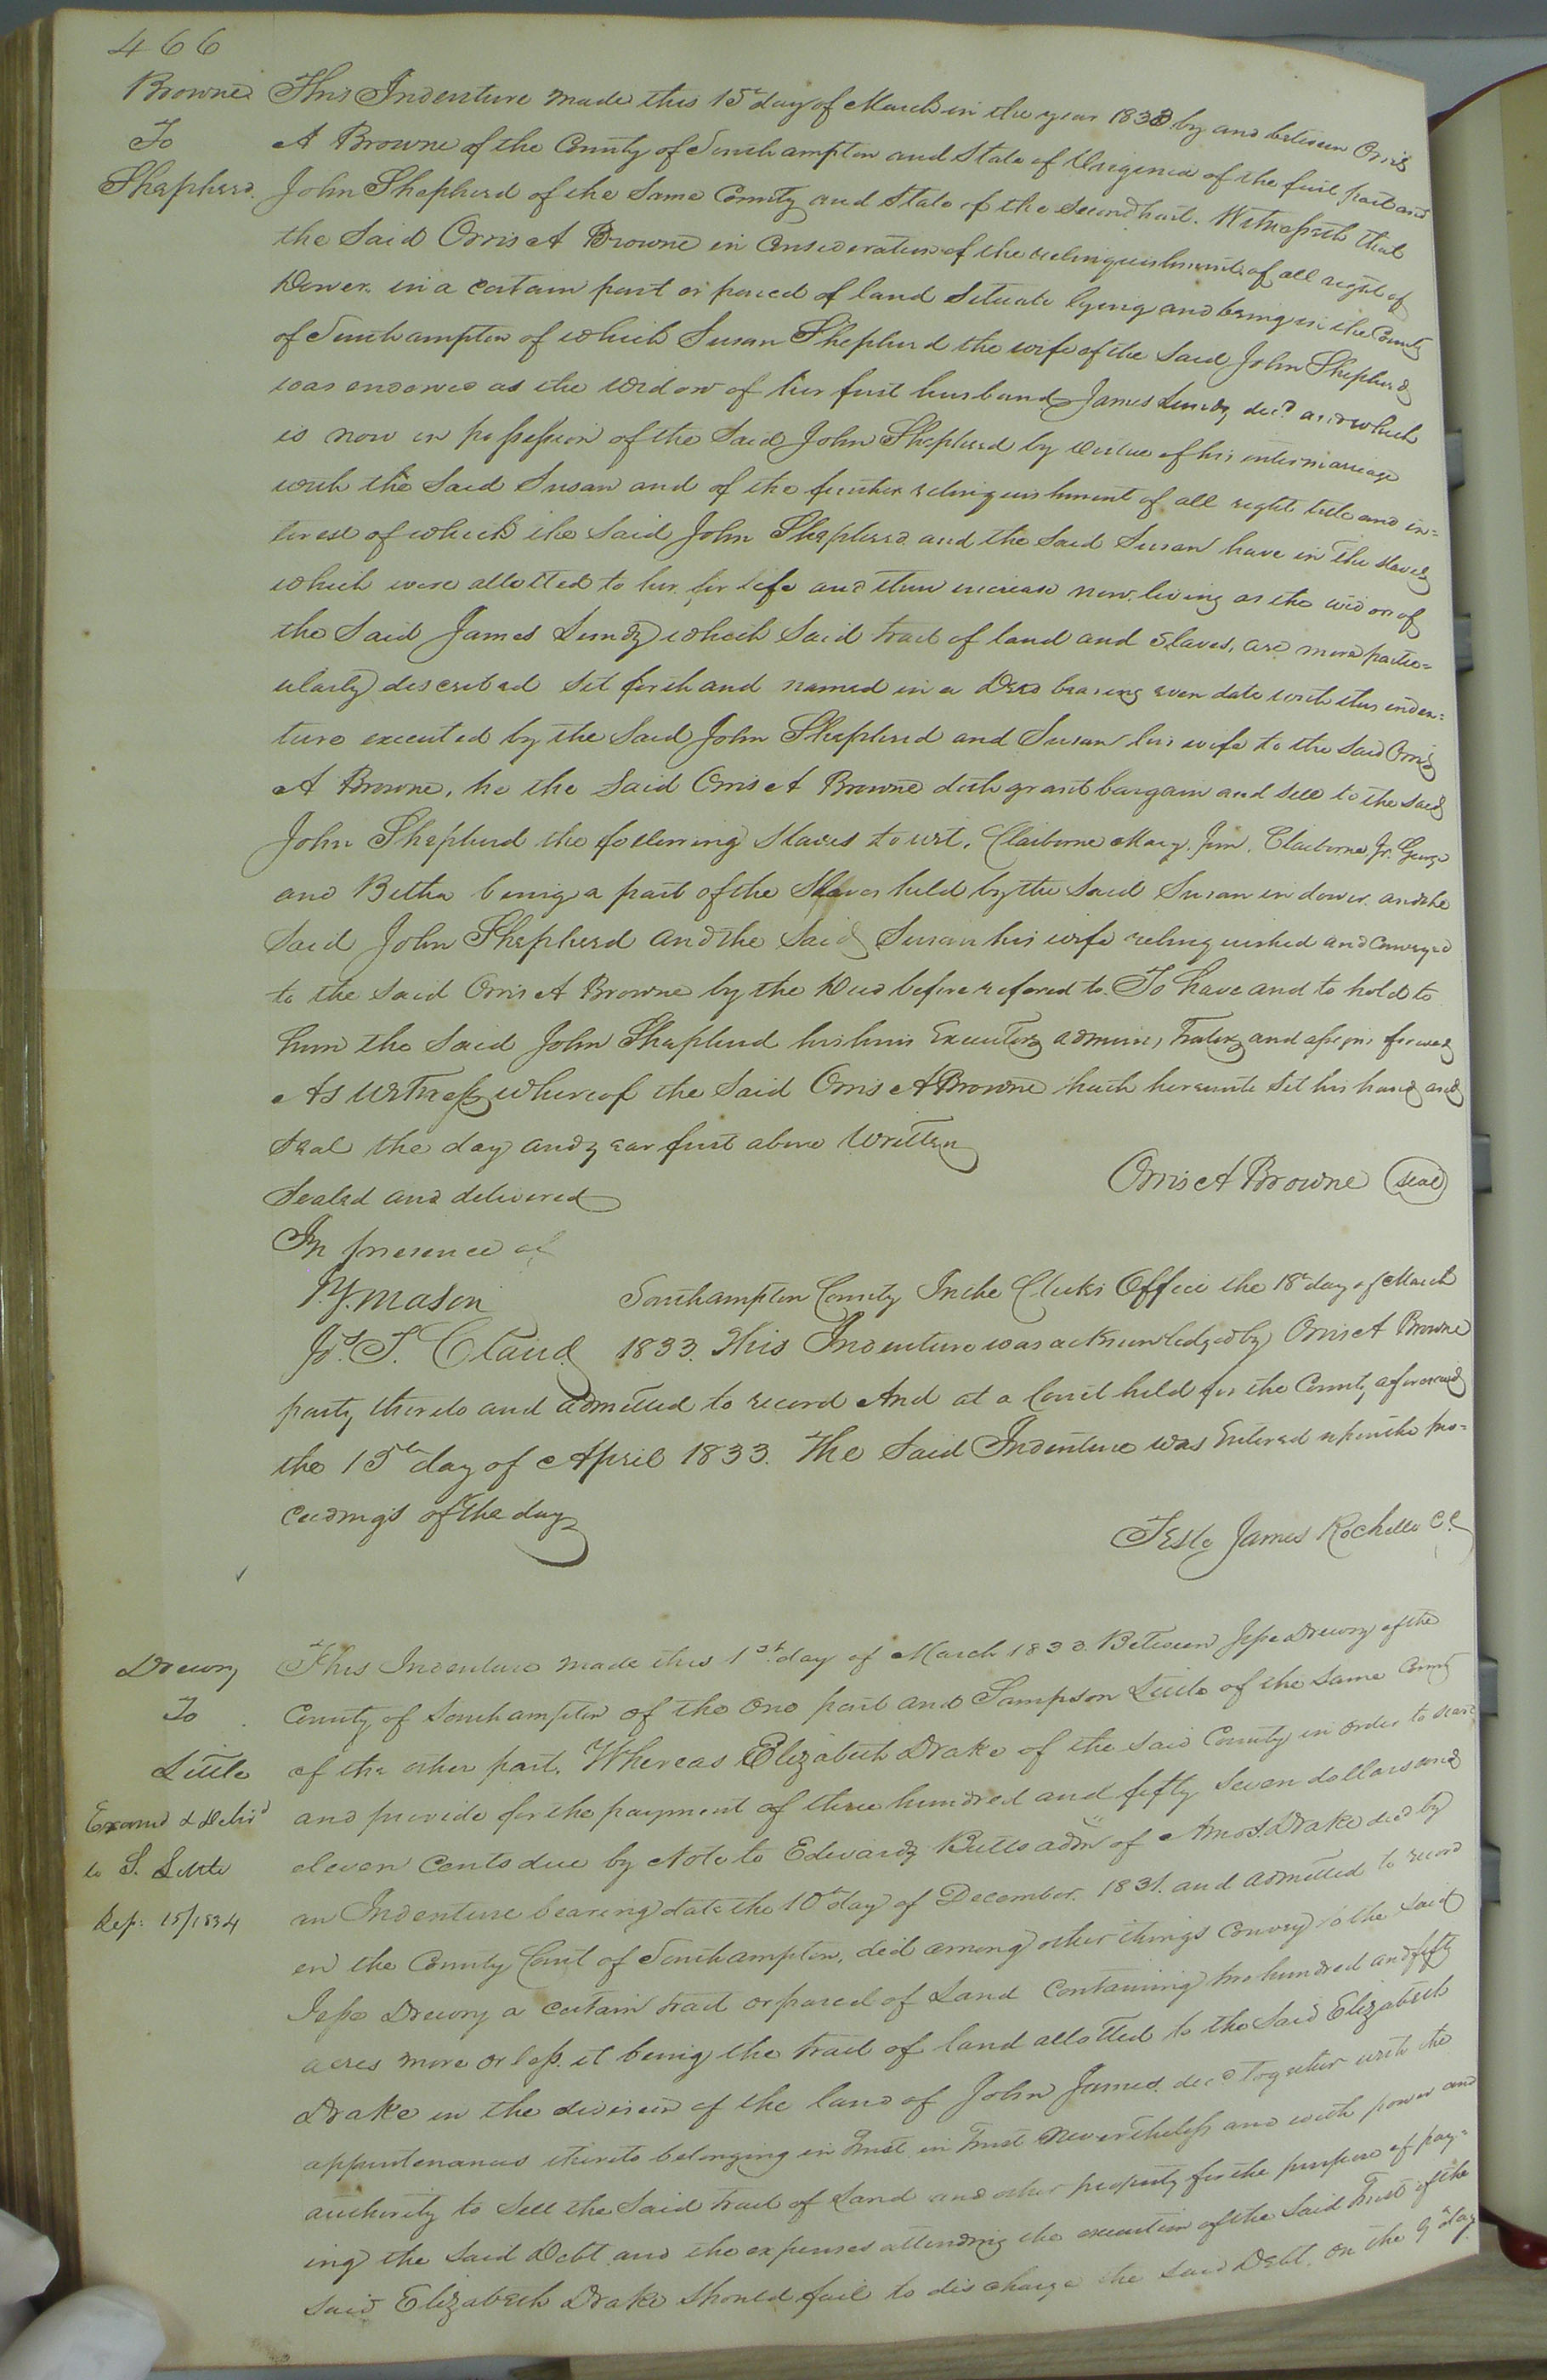 466
Browne
To
Shepherd.
This Indenture made this 15th day of March in the year 1833 by and between Orris
A Browne of the County of Southampton and State of Virginia of the first part and
John Shepherd of the Same County and State of the Second part. Witnesseth that
the Said Orris A Browne in Consideration of the relinquishment of all right of
Dower in a Certain part or parcel of land Situate lying and being in the County
of Southampton of which Susan Shepherd the wife of the Said John Shepherd
was endowed as the widow of her first husband James Lundy decd. and which
is now in possession of the Said John Shepherd by virtue of his intermarriage
with the Said Susan and of the further relinquishment of all right title and in=
terest of which the Said John Shepherd and the Said Susan have in the Slaves
which were allotted to her for life and their increase now living as the widow of
the Said James Lundy which Said tract of land and Slaves, are more partic=
ularly described Set forth and named in a Deed bearing even date with this inden=
ture executed by the Said John Shepherd and Susan his wife to the Said Orris
A Browne, he the Said Orris A Browne doth grant bargain and sell to the Said
John Shepherd the following Slaves to wit, Claiborne Mary, Jim, Claiborne Jr. George
and Betha being a part of the Slaves held by the Said Susan in dower and the
Said John Shepherd and the Said Susan his wife relinquished and Conveyed
to the Said Orris A Browne by the Deed before refered to. To have and to hold to
him the Said John Shepherd his heirs Executors administrators and assigns forever
As Witness whereof the Said Orris A Browne hath hereunto Set his hand and
Seal the day and year first above Written
Orris A Browne (seal)
Sealed and delivered
In presence of
J.Y. Mason
Jo. T. Claud
Southampton County In the Clerks Office the 18th day of March
1833. This Indenture was acknowledged by Orris A Browne
party thereto and admitted to record And at a Court held for the County aforesaid
the 15th day of April 1833. The Said Indenture was Entered upon the pro=
ceedings of the day
Teste James Rochelle CC
Drewry
To
Little
Examd & Delivd
to S. Little
Sep: 15/1834
This Indenture made this 1st day of March 1833. Between Jesse Drewry of the
County of Southampton of the one part and Sampson Little of the Same County
of the other part. Whereas Elizabeth Drake of the Said County in order to secure
and provide for the payment of three hundred and fifty Seven dollars and
eleven Cents due by Note to Edward Butts admr of Amos Drake decd by
an Indenture bearing date the 10th day of December 1831. and admitted to record
in the County Court of Southampton, did among other things Convey to the Said
Jesse Drewry a certain tract or parcel of Land Containing two hundred and fifty
acres more or less, it being the tract of land allotted to the Said Elizabeth
Drake in the division of the land of John James decd. together with the
appurtenances thereto belonging in Trust in Trust Nevertheless and with power and
authority to Sell the Said tract of Land and other property for the purpose of pay=
ing the Said Debt and the expenses attending the execution of the Said Trust if the
Said Elizabeth Drake Should fail to discharge the Said Debt. on the 9th day